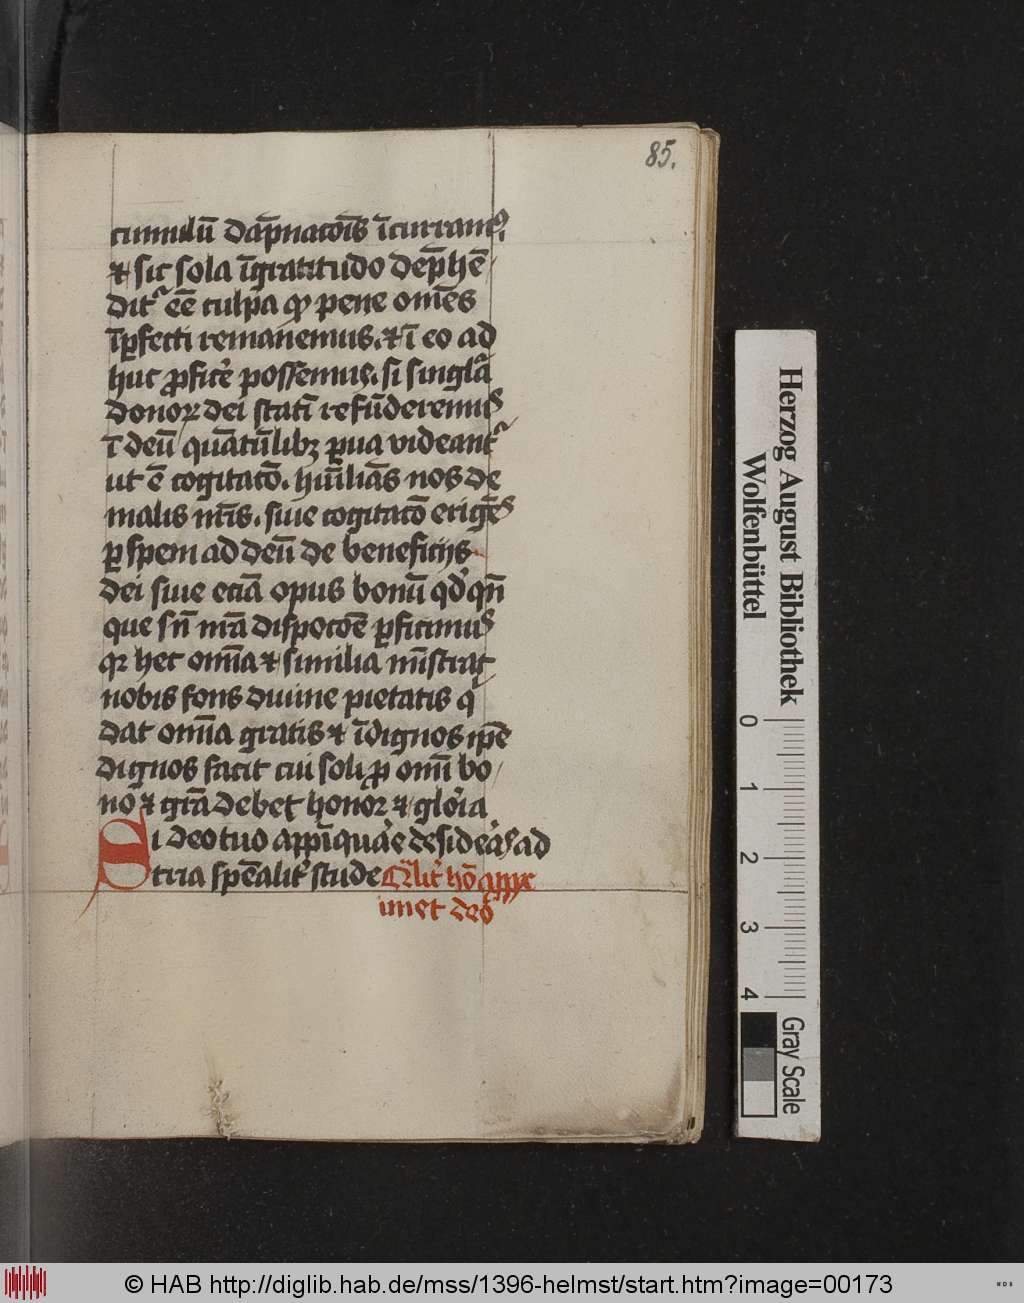 85.
cumulū dāpnacōis īcurram⁹
⁊ sic sola īgratitudo dep̄hē
dit᷑ eē culpa qꝫ pene om̄es
īꝑfecti remanemus. ⁊ ī eo ad
huc ꝓficẽ possemus. si singl̄a
donoꝝ dei statī refūderemus
ī deū quātūlibꝫ ꝑua videant᷑
ut ē cogitatō. hūīliās nos de
malis nr̄is. siue cogitatō erigēs
ꝑ spem ad deū de beneficijs
dei siue eciā opus bonū qd̓ qn̄
que sn̄ m̄a dispocōe ꝑficimus
qꝛ hec om̄ia ⁊ similia mīstrat
nobis fons diuine pietatis q̓
dat om̄ia gratis ⁊ īdignos ip̄e
dignos facit cui soli ꝓ om̄i bo
nō ⁊ gr̄a debet honor ⁊ glōia
Si deo tuo appīquãe desideãs ad
tria sp̄ealit̓ stude Qr̄lit̓ hō appx
imet deo
Herzog August Bibliothek
Wolfenbüttel
0 1 2 3 4
Gray Scale
© HAB http://diglib.hab.de/mss/1396-helmst/start.htm?image=00173